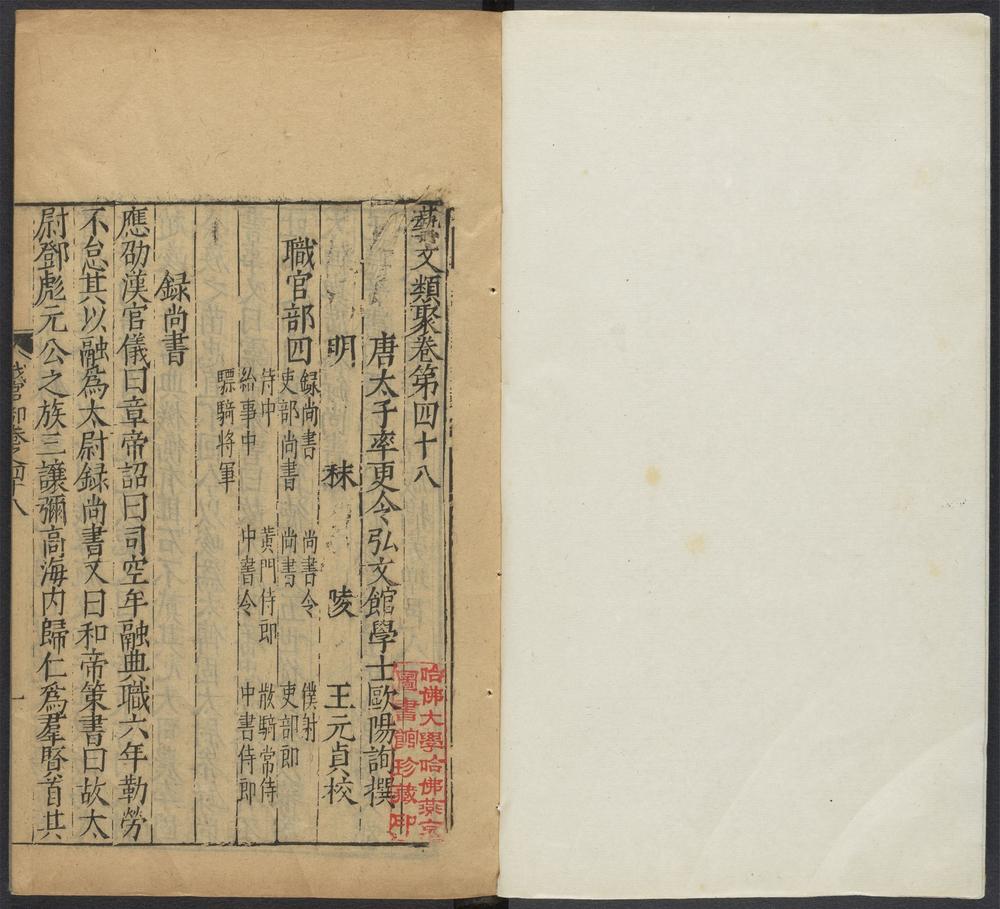 藝文類聚卷第四十八
唐太子率更令弘文館學士歐陽詢撰
明 秣 陵 王元貞校
職官部四
録尚書 尚書令 僕射
吏部尚書 尚書 吏部郎
侍中 黃門侍郎 散騎常侍
給事中 中書令 中書侍郎
驃騎將軍
録尚書
應劭漢官儀曰章帝詔曰司空牟融典職六年勤勞
不怠其以融為太尉録尚書又曰和帝策書曰故太
尉鄧彪元公之族三讓彌高海内歸仁為羣賢首其
卷之四十八
一
哈佛大學哈佛燕京
圖書館珍藏印